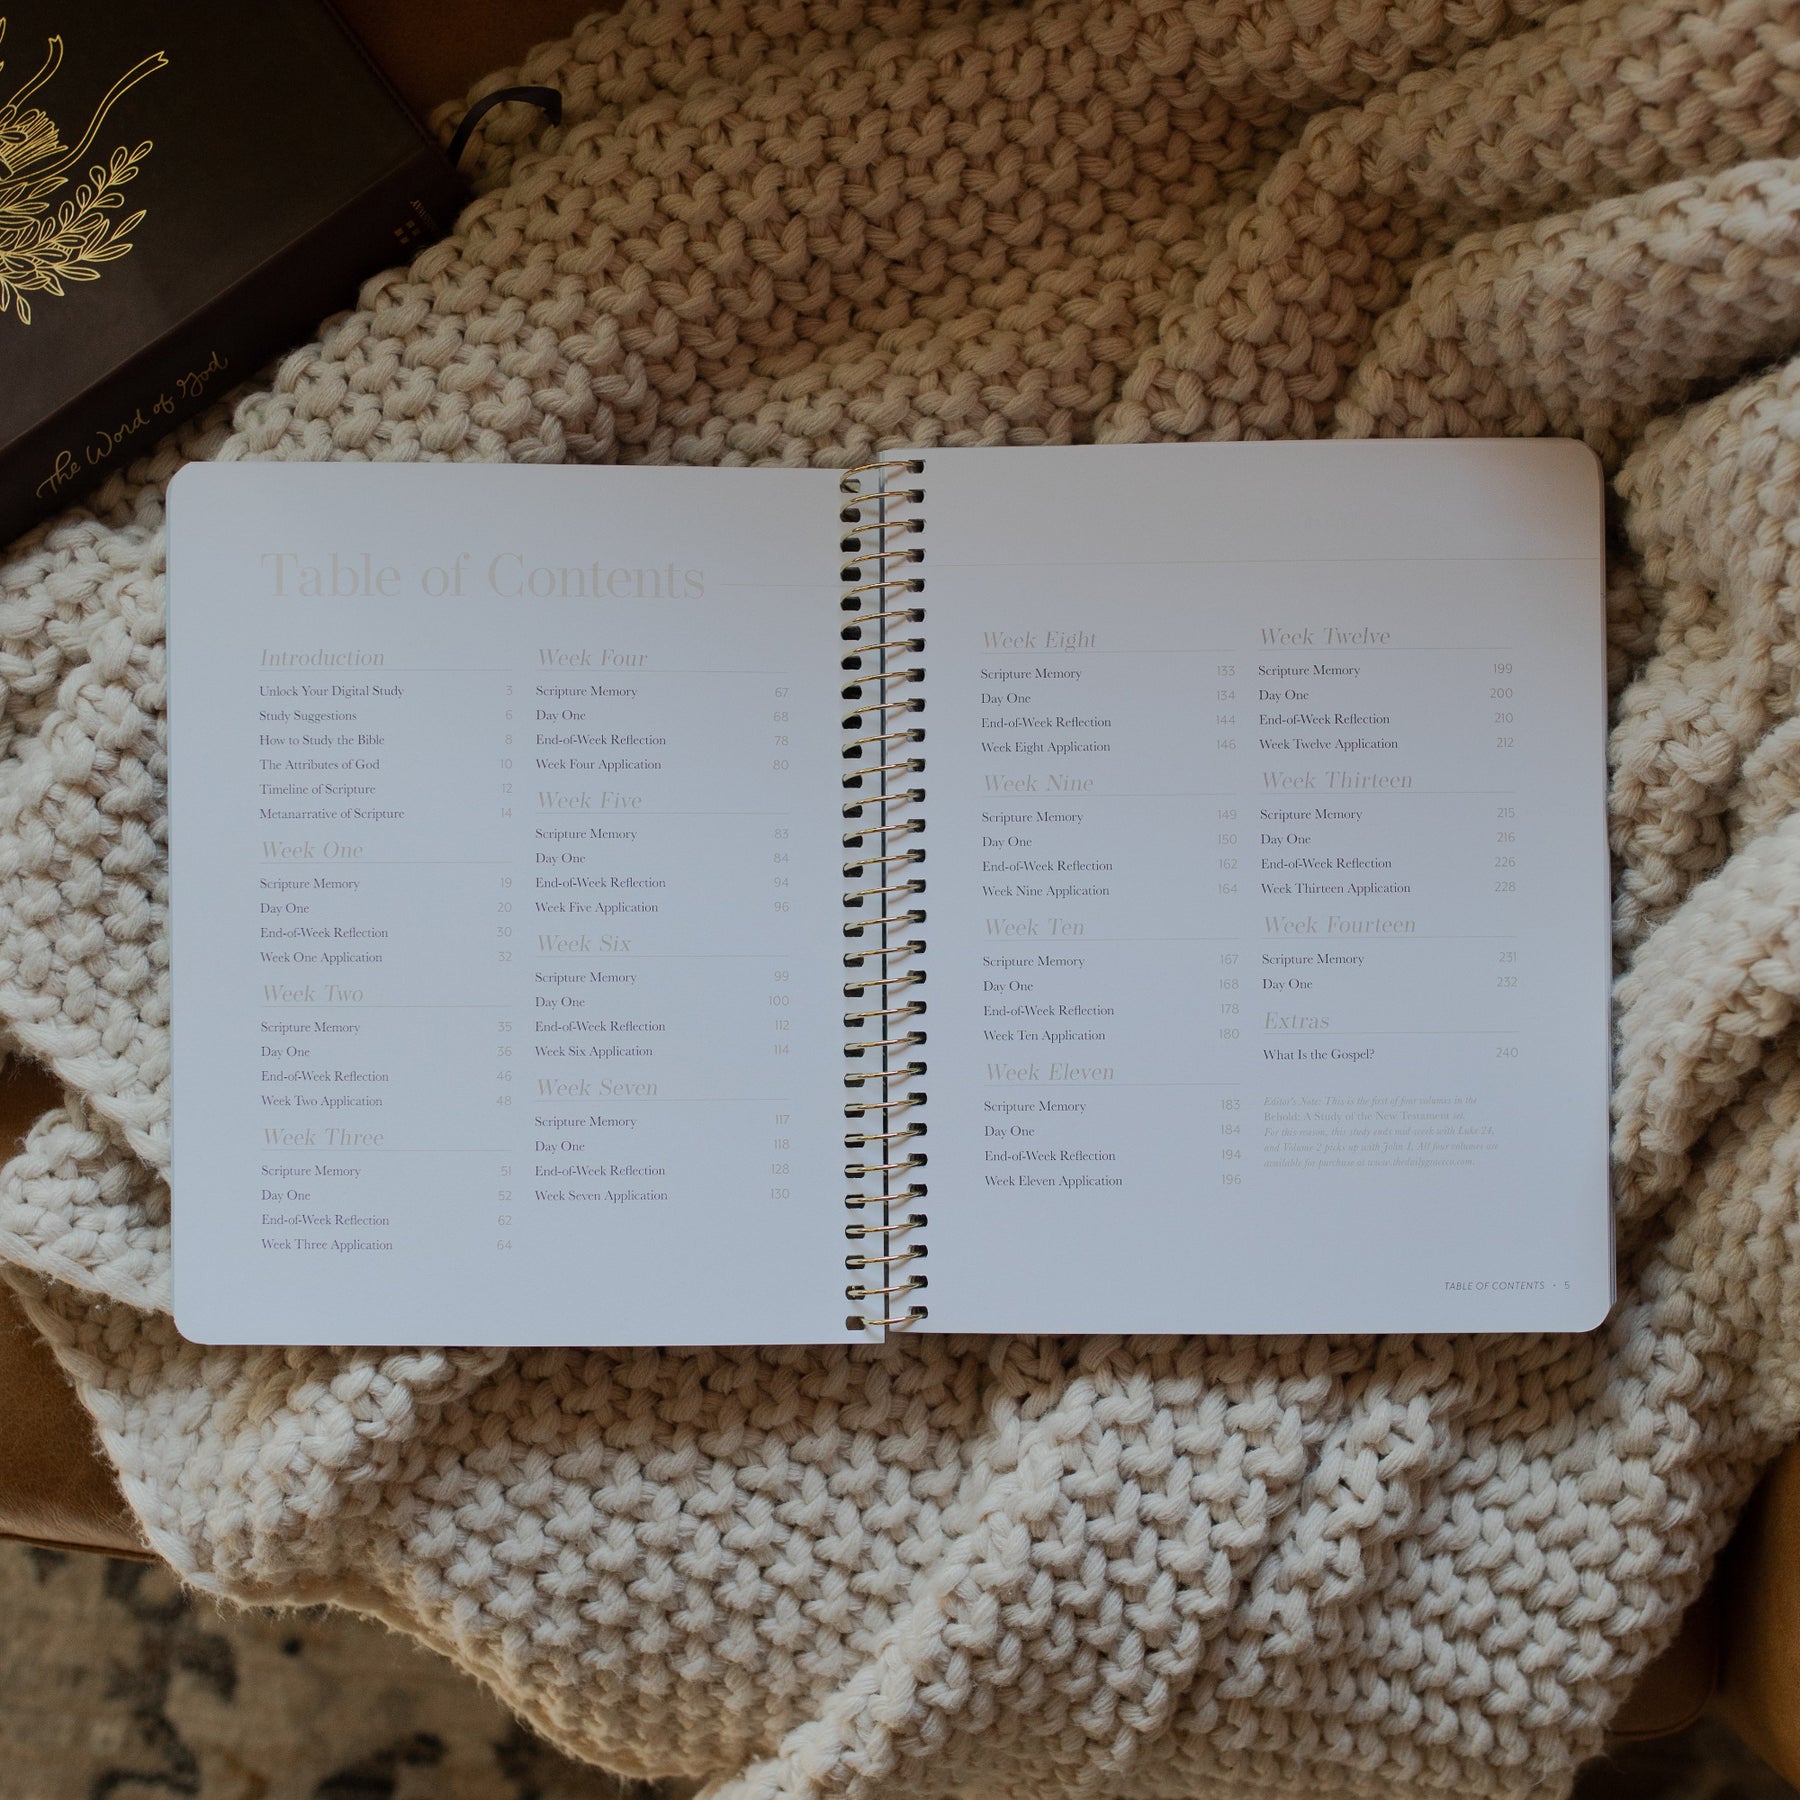 The Word of God
Table of Contents
Introduction
Unlock Your Digital Study 3
Study Suggestions 6
How to Study the Bible 8
The Attributes of God 10
Timeline of Scripture 12
Metanarrative of Scripture 14
Week One
Scripture Memory 19
Day One 20
End-of-Week Reflection 30
Week One Application 32
Week Two
Scripture Memory 35
Day One 36
End-of-Week Reflection 46
Week Two Application 48
Week Three
Scripture Memory 51
Day One 52
End-of-Week Reflection 62
Week Three Application 64
Week Four
Scripture Memory 67
Day One 68
End-of-Week Reflection 78
Week Four Application 80
Week Five
Scripture Memory 83
Day One 84
End-of-Week Reflection 94
Week Five Application 96
Week Six
Scripture Memory 99
Day One 100
End-of-Week Reflection 112
Week Six Application 114
Week Seven
Scripture Memory 117
Day One 118
End-of-Week Reflection 128
Week Seven Application 130
Week Eight
Scripture Memory 133
Day One 134
End-of-Week Reflection 144
Week Eight Application 146
Week Nine
Scripture Memory 149
Day One 150
End-of-Week Reflection 162
Week Nine Application 164
Week Ten
Scripture Memory 167
Day One 168
End-of-Week Reflection 178
Week Ten Application 180
Week Eleven
Scripture Memory 183
Day One 184
End-of-Week Reflection 194
Week Eleven Application 196
Week Twelve
Scripture Memory 199
Day One 200
End-of-Week Reflection 210
Week Twelve Application 212
Week Thirteen
Scripture Memory 215
Day One 216
End-of-Week Reflection 226
Week Thirteen Application 228
Week Fourteen
Scripture Memory 231
Day One 232
Extras
What Is the Gospel? 240
Editor's Note: This is the first of four volumes in the
Behold: A Study of the New Testament set.
For this reason, this study ends mid-week with Luke 24,
and Volume 2 picks up with John 1. All four volumes are
available for purchase at www.thedailygraceco.com.
TABLE OF CONTENTS • 5